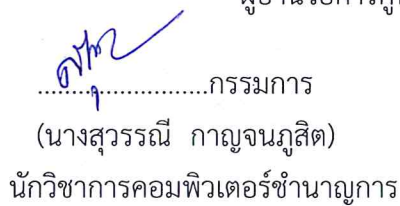 ผู้อำนวยการกู
........................กรรมการ
(นางสุวรรณี กาญจนภูสิต)
นักวิชาการคอมพิวเตอร์ชำนาญการ